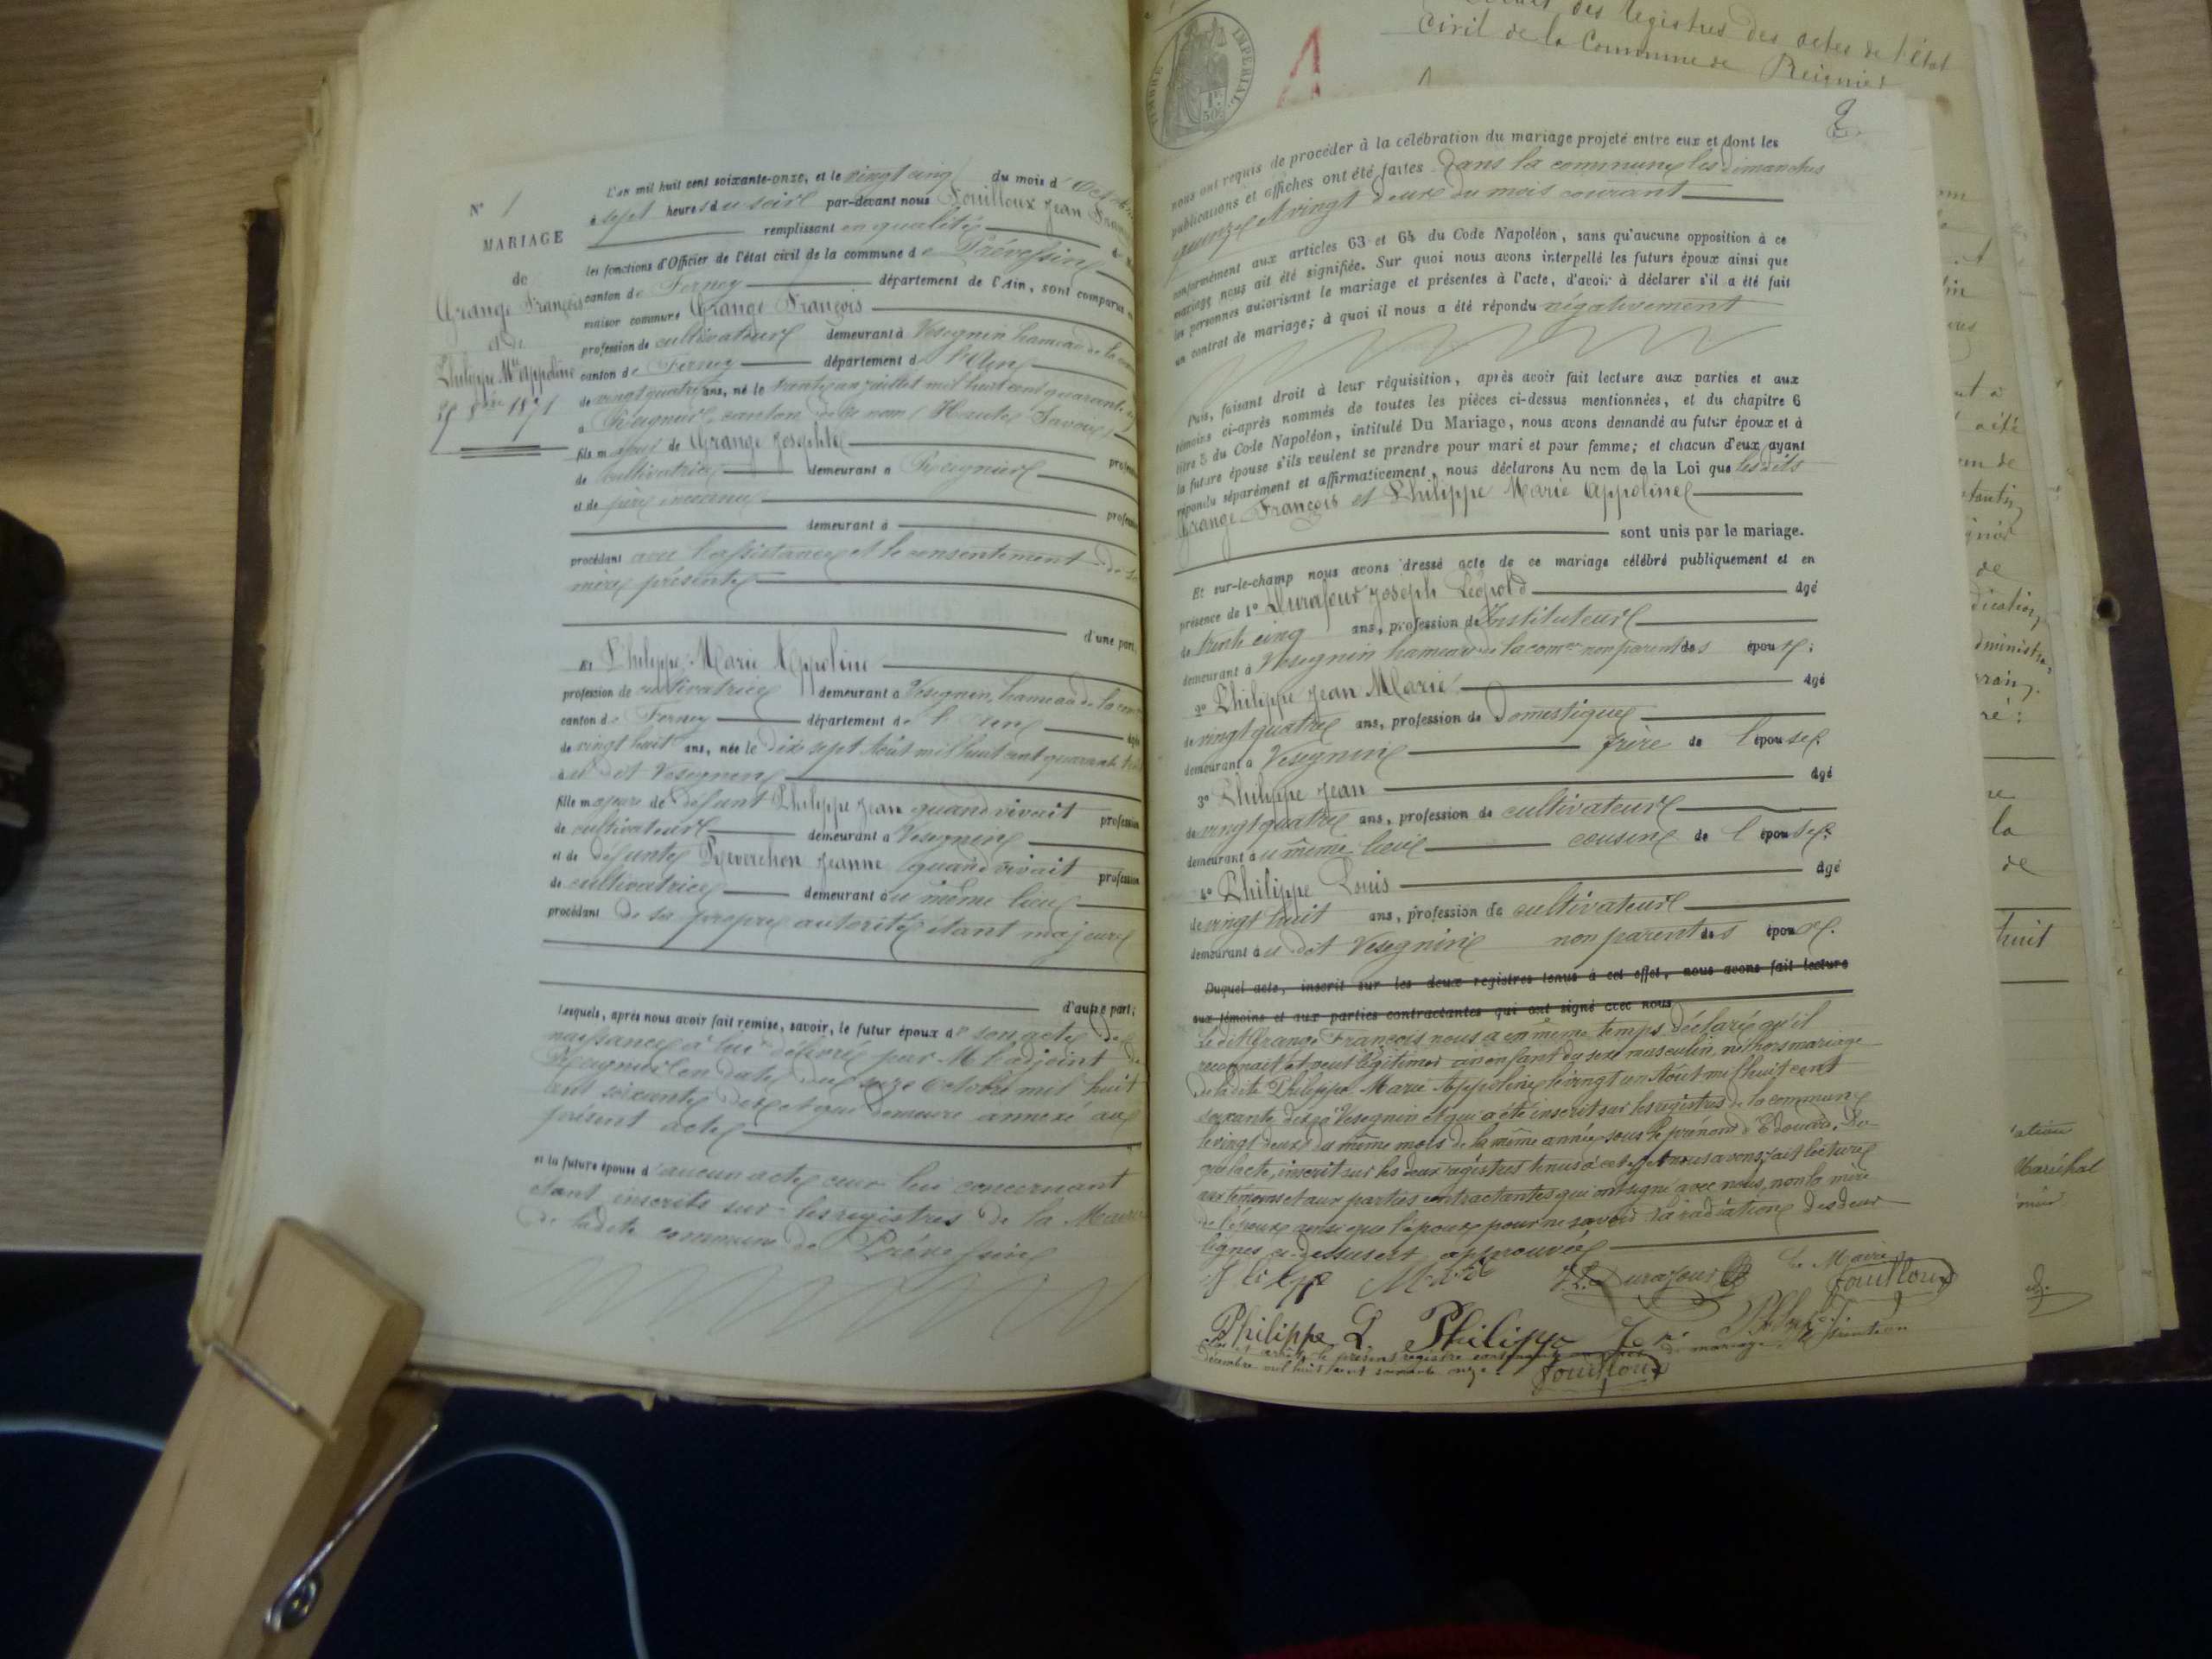 N° 1
MARIAGE
de
Grange François
et de
Philippe Mie Appoline
25 8bre 1871
L'an mil huit cent soixante-onze, et le vingt cinq du mois d'Octobre
à sept heures du soir par-devant nous Fouilloux Jean
remplissant en qualité
les fonctions d'Officier de l'état civil de la commune de Prévessin
canton de Ferney département de l'Ain, sont comparus
maison commune Grange François
profession de cultivateur demeurant à Vesegnin hameau de la
canton de Ferney département de l'Ain
de vingt quatre ans, né le trente un juillet mil huit cent quarante
à Reignier, canton de ce nom (Haute Savoie)
fils majeur de Grange Josephte
de cultivatrice demeurant à Reignier profession
et de père inconnu
demeurant à profession
procédant avec l'assistance et le consentement de sa
mère présente
d'une part,
Et Philippe Marie Appoline
profession de cultivatrice demeurant à Vesegnin, hameau de la
canton de Ferney département de l'Ain
de vingt huit ans, née le dix sept Août mil huit cent quarante trois
au dit Vesegnin
fille majeure de défunt Philippe Jean quand vivait profession
de cultivateur demeurant à Vesegnin
et de défunte Reverchon Jeanne quand vivait profession
de cultivatrice demeurant au même lieu
procédant de sa propre autorité étant majeure
d'autre part;
Lesquels, après nous avoir fait remise, savoir, le futur époux de son acte de
naissance à lui délivré par M. l'adjoint de
Reignier en date du onze Octobre mil huit
cent soixante onze et qui demeure annexé au
présent acte
et la future épouse d'aucun acte ceux lui concernant
étant inscrits sur les registres de la Mairie
de ladite commune de Prévessin
TIMBRE IMPERIAL
1F
50c
1
des Registres des actes de l'État
Civil de la Commune de Reignier
2
nous ont requis de procéder à la célébration du mariage projeté entre eux et dont les
publications et affiches ont été faites dans la commune les dimanches
quinze et vingt deux du mois courant
conformément aux articles 63 et 64 du Code Napoléon, sans qu'aucune opposition à ce
mariage nous ait été signifiée. Sur quoi nous avons interpellé les futurs époux ainsi que
les personnes autorisant le mariage et présentes à l'acte, d'avoir à déclarer s'il a été fait
un contrat de mariage; à quoi il nous a été répondu négativement
Puis, faisant droit à leur réquisition, après avoir fait lecture aux parties et aux
témoins ci-après nommés de toutes les pièces ci-dessus mentionnées, et du chapitre 6
titre 5 du Code Napoléon, intitulé Du Mariage, nous avons demandé au futur époux et à
la future épouse s'ils veulent se prendre pour mari et pour femme; et chacun d'eux ayant
répondu séparément et affirmativement, nous déclarons Au nom de la Loi que lesdits
Grange François et Philippe Marie Appoline
sont unis par le mariage.
Et sur-le-champ nous avons dressé acte de ce mariage célébré publiquement et en
présence de 1° Durafour Joseph Léopold âgé
de trente cinq ans, profession de Instituteur
demeurant à Vesegnin hameau de la come non parent des époux;
2° Philippe Jean Marie âgé
de vingt quatre ans, profession de Domestique
demeurant à Vesegnin frère de l'épouse.
3° Philippe Jean âgé
de vingt quatre ans, profession de cultivateur
demeurant au même lieu cousin de l'épouse.
4° Philippe Louis âgé
de vingt huit ans, profession de cultivateur
demeurant au dit Vesegnin non parent des époux.
Duquel acte, inscrit sur les deux registres tenus à cet effet, nous avons fait lecture
aux témoins et aux parties contractantes qui ont signé avec nous
Ledit Grange François nous a en même temps déclaré qu'il
reconnaît et veut légitimer un enfant du sexe masculin, né hors mariage
de ladite Philippe Marie Appoline le vingt un Août mil huit cent
soixante dix à Vesegnin et qui a été inscrit sur les registres de la commune
le vingt deux du même mois de la même année sous le prénom d'Edouard. Du-
quel acte, inscrit sur les deux registres tenus à cet effet nous avons fait lecture
aux témoins et aux parties contractantes qui ont signé avec nous, non la mère
de l'époux ainsi que l'épouse pour ne savoir la radiation des deux
lignes ci-dessus est approuvée
Le Maire
Durafour
Fouilloux
Philippe L Philippe
le présent registre
Décembre mil huit cent soixante onze.
Fouilloux